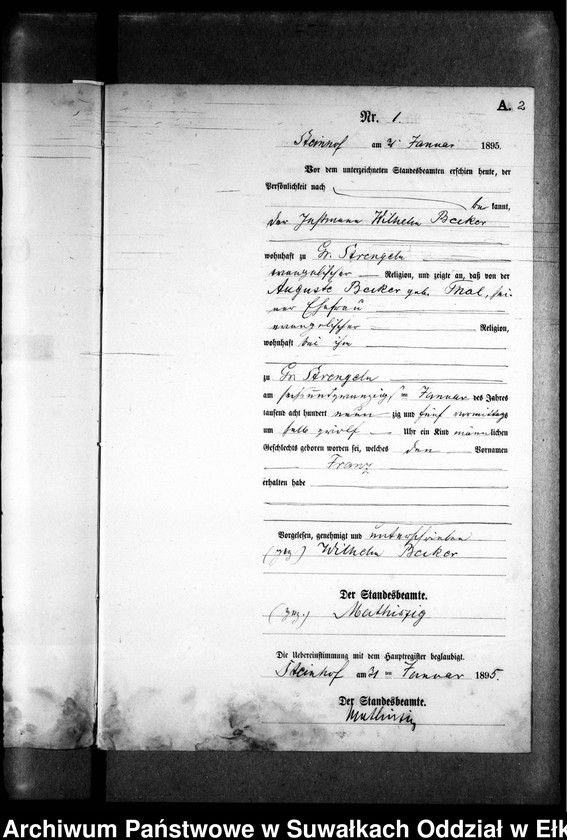 A. 2
Nr. 1
Steinhof am 31 Januar 1895.
Vor dem unterzeichneten Standesbeamten erschien heute, der
Persönlichkeit nach
be kannt,
der Instmann Wilhelm Becker
wohnhaft zu Gr. Strengeln
evangelischer Religion, und zeigte an, daß von der
Auguste Becker geb. Mal, sei-
ner Ehefrau
evangelischer Religion,
wohnhaft bei ihm
zu Gr Strengeln
am sechsundzwanzigsten Januar des Jahres
tausend acht hundert neun zig und fünf vormittags
um halb zwölf Uhr ein Kind männlichen
Geschlechts geboren worden sei, welches den Vornamen
Franz
erhalten habe
Vorgelesen, genehmigt und unterschrieben
(gez) Wilhelm Becker
Der Standesbeamte.
(gez.) Mathiszig
Die Uebereinstimmung mit dem Hauptregister beglaubigt.
Steinhof am 31 ten Januar 1895.
Der Standesbeamte.
Mathiszig
Archiwum Państwowe w Suwałkach Oddział w Ełk